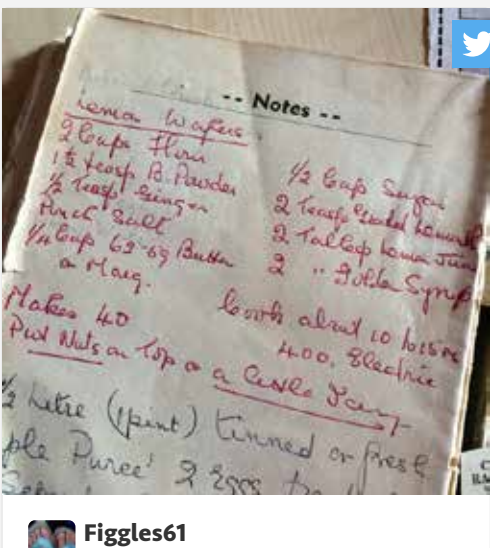 -- Notes --
Lemon Wafers.
2 Cups Flour
1½ teasp B. Powder
½ Teasp Ginger
Pinch Salt
¼ Cup 62-69 Butter
or Marg.
½ Cup Sugar
2 Teasp Grated Lemon
2 Tablesp Lemon Juice
2 " Golden Syrup
Makes 40
Cook about 10 to 15 m
400. Electric
Put Nuts on Top or a little
½ Litre (1 pint) tinned or fresh
ple Puree' 2 Eggs
Figgles61